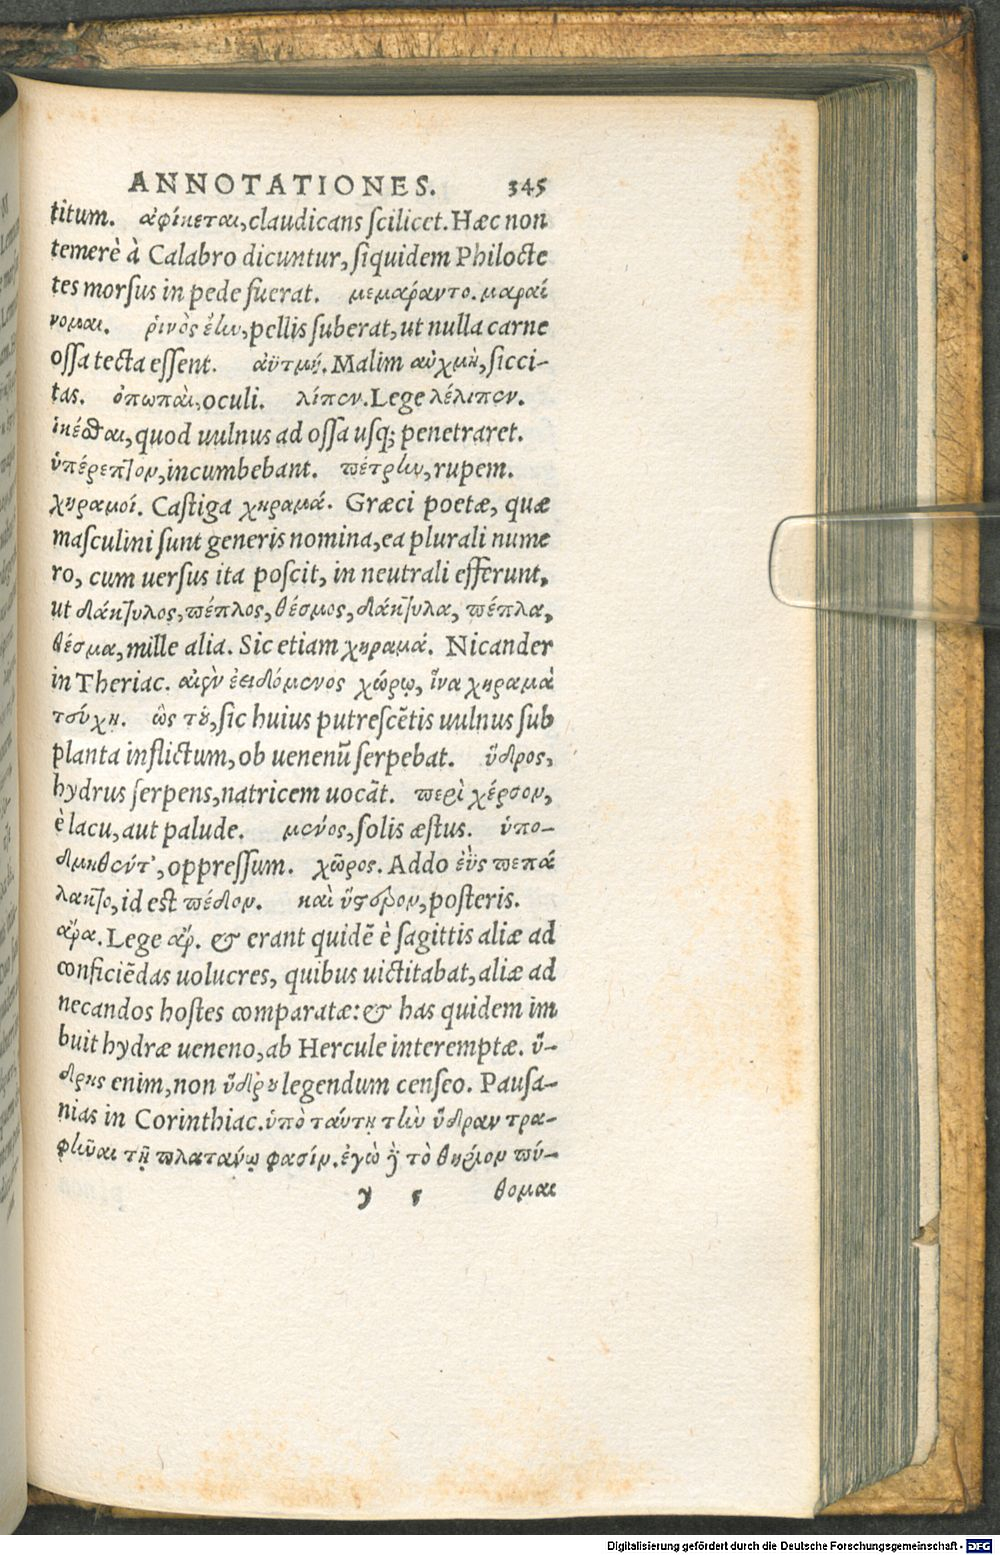 ANNOTATIONES. 345
titum. ἀφίκεται, claudicans ſcilicet. Hæc non
temerè à Calabro dicuntur, ſiquidem Philocte
tes morſus in pede fuerat. μεμάραντο. μαραί
νομαι. ῥινὸς ἔην, pellis ſuberat, ut nulla carne
oſſa tecta eſſent. ἀϋτμή. Malim αὐχμὴ, ſicci-
tas. ὀπωπαὶ, oculi. λίπον. Lege λέλιπον.
ἱκέσθαι, quod uulnus ad oſſa uſq; penetraret.
ὑπέρεπτον, incumbebant. πέτρην, rupem.
χηραμοί. Caſtiga χηραμά. Græci poetæ, quæ
maſculini ſunt generis nomina, ea plurali nume
ro, cum uerſus ita poſcit, in neutrali efferunt,
ut δάκτυλος, πέπλος, θέσμος, δάκτυλα, πέπλα,
θέσμα, mille alia. Sic etiam χηραμά. Nicander
in Theriac. αἰὲν ἐειδόμενος χώρῳ, ἵνα χηραμὰ
τεύχη. ὣς τȣ̃, ſic huius putreſcẽtis uulnus ſub
planta inflictum, ob uenenũ ſerpebat. ὕδρος,
hydrus ſerpens, natricem uocãt. περὶ χέρσον,
è lacu, aut palude. μένος, ſolis æſtus. ὑπο-
δμηθέντ', oppreſſum. χῶρος. Addo ἐῢς πεπά
λακτο, id est πέδον. καὶ ὕστερον, poſteris.
ἄρα. Lege ἄρ. & erant quidẽ è ſagittis aliæ ad
conficiẽdas uolucres, quibus uictitabat, aliæ ad
necandos hoſtes comparatæ: & has quidem im
buit hydræ ueneno, ab Hercule interemptæ. ὕ-
δρης enim, non ὕδρȣ legendum cenſeo. Pauſa-
nias in Corinthiac. ὑπὸ ταύτῃ τὴν ὕδραν τρα-
φῆναι τῇ πλατάνῳ φασίν. ἐγὼ ἢ τὸ θηρίον πεί-
y 5 θομαι
Digitalisierung gefördert durch die Deutsche Forschungsgemeinschaft - DFG